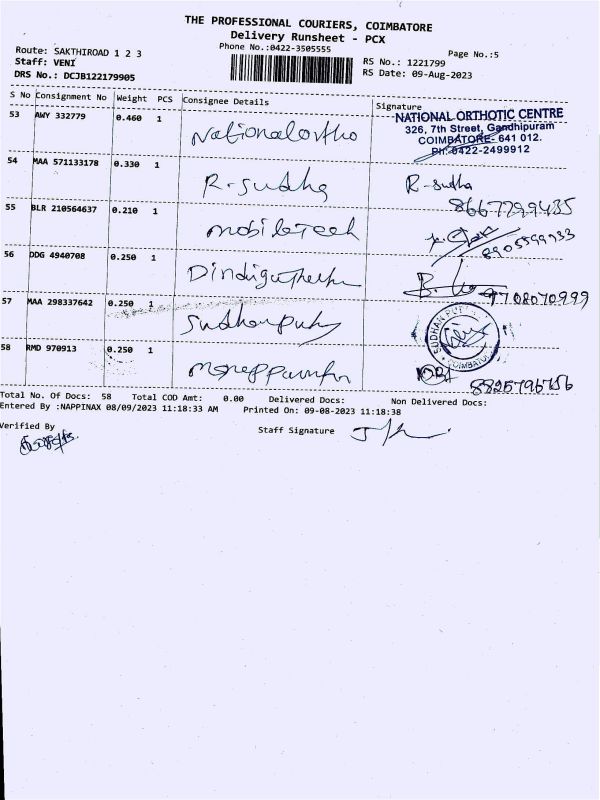 THE PROFESSIONAL COURIERS, COIMBATORE
Delivery Runsheet - PCX
Phone No.:0422-3505555
Page No.:5
Route: SAKTHIROAD 1 2 3
Staff: VENI
DRS No.: DCJB122179905
RS No.: 1221799
RS Date: 09-Aug-2023
S No Consignment No Weight PCS Consignee Details Signature
53 AWY 332779 0.460 1 Nationalortho
NATIONAL ORTHOTIC CENTRE
326, 7th Street, Gandhipuram
COIMBATORE- 641 012.
Ph: 0422-2499912
54 MAA 571133178 0.330 1 R-sudha R-sudha
8667799435
55 BLR 210564637 0.210 1 mobileTech
8905599933
56 DDG 4940708 0.250 1
9708070999
57 MAA 298337642 0.250 1
SUDHAN
COIMBATORE
58 RMD 970913 0.250 1
8825796756
Total No. Of Docs: 58 Total COD Amt: 0.00 Delivered Docs: Non Delivered Docs:
Entered By :NAPPINAX 08/09/2023 11:18:33 AM Printed On: 09-08-2023 11:18:38
Verified By
Staff Signature